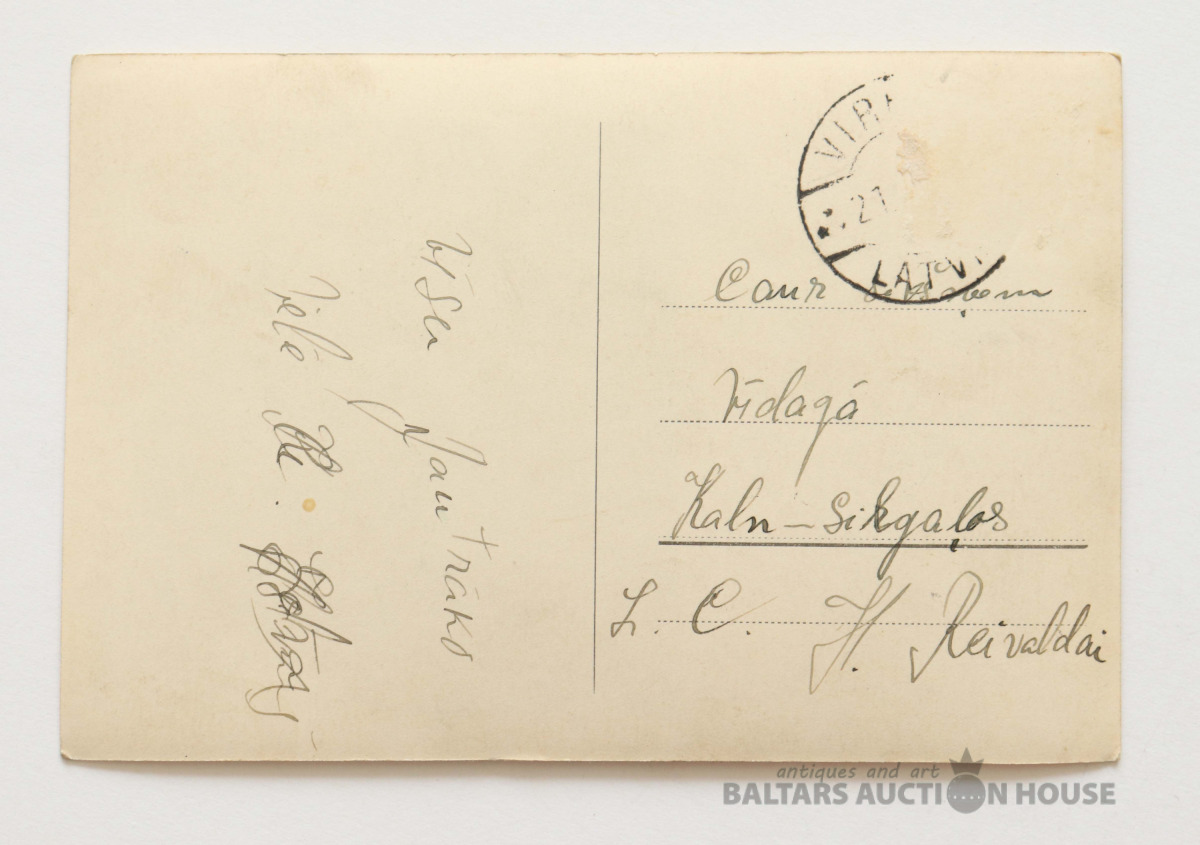 Visu jautrāko
vēlē
VIRA
21
LATVI
Caur
Vidagā
Kaln-Sikgaļos
L. C. H. Reivaldai
antiques and art
BALTARS AUCTION HOUSE